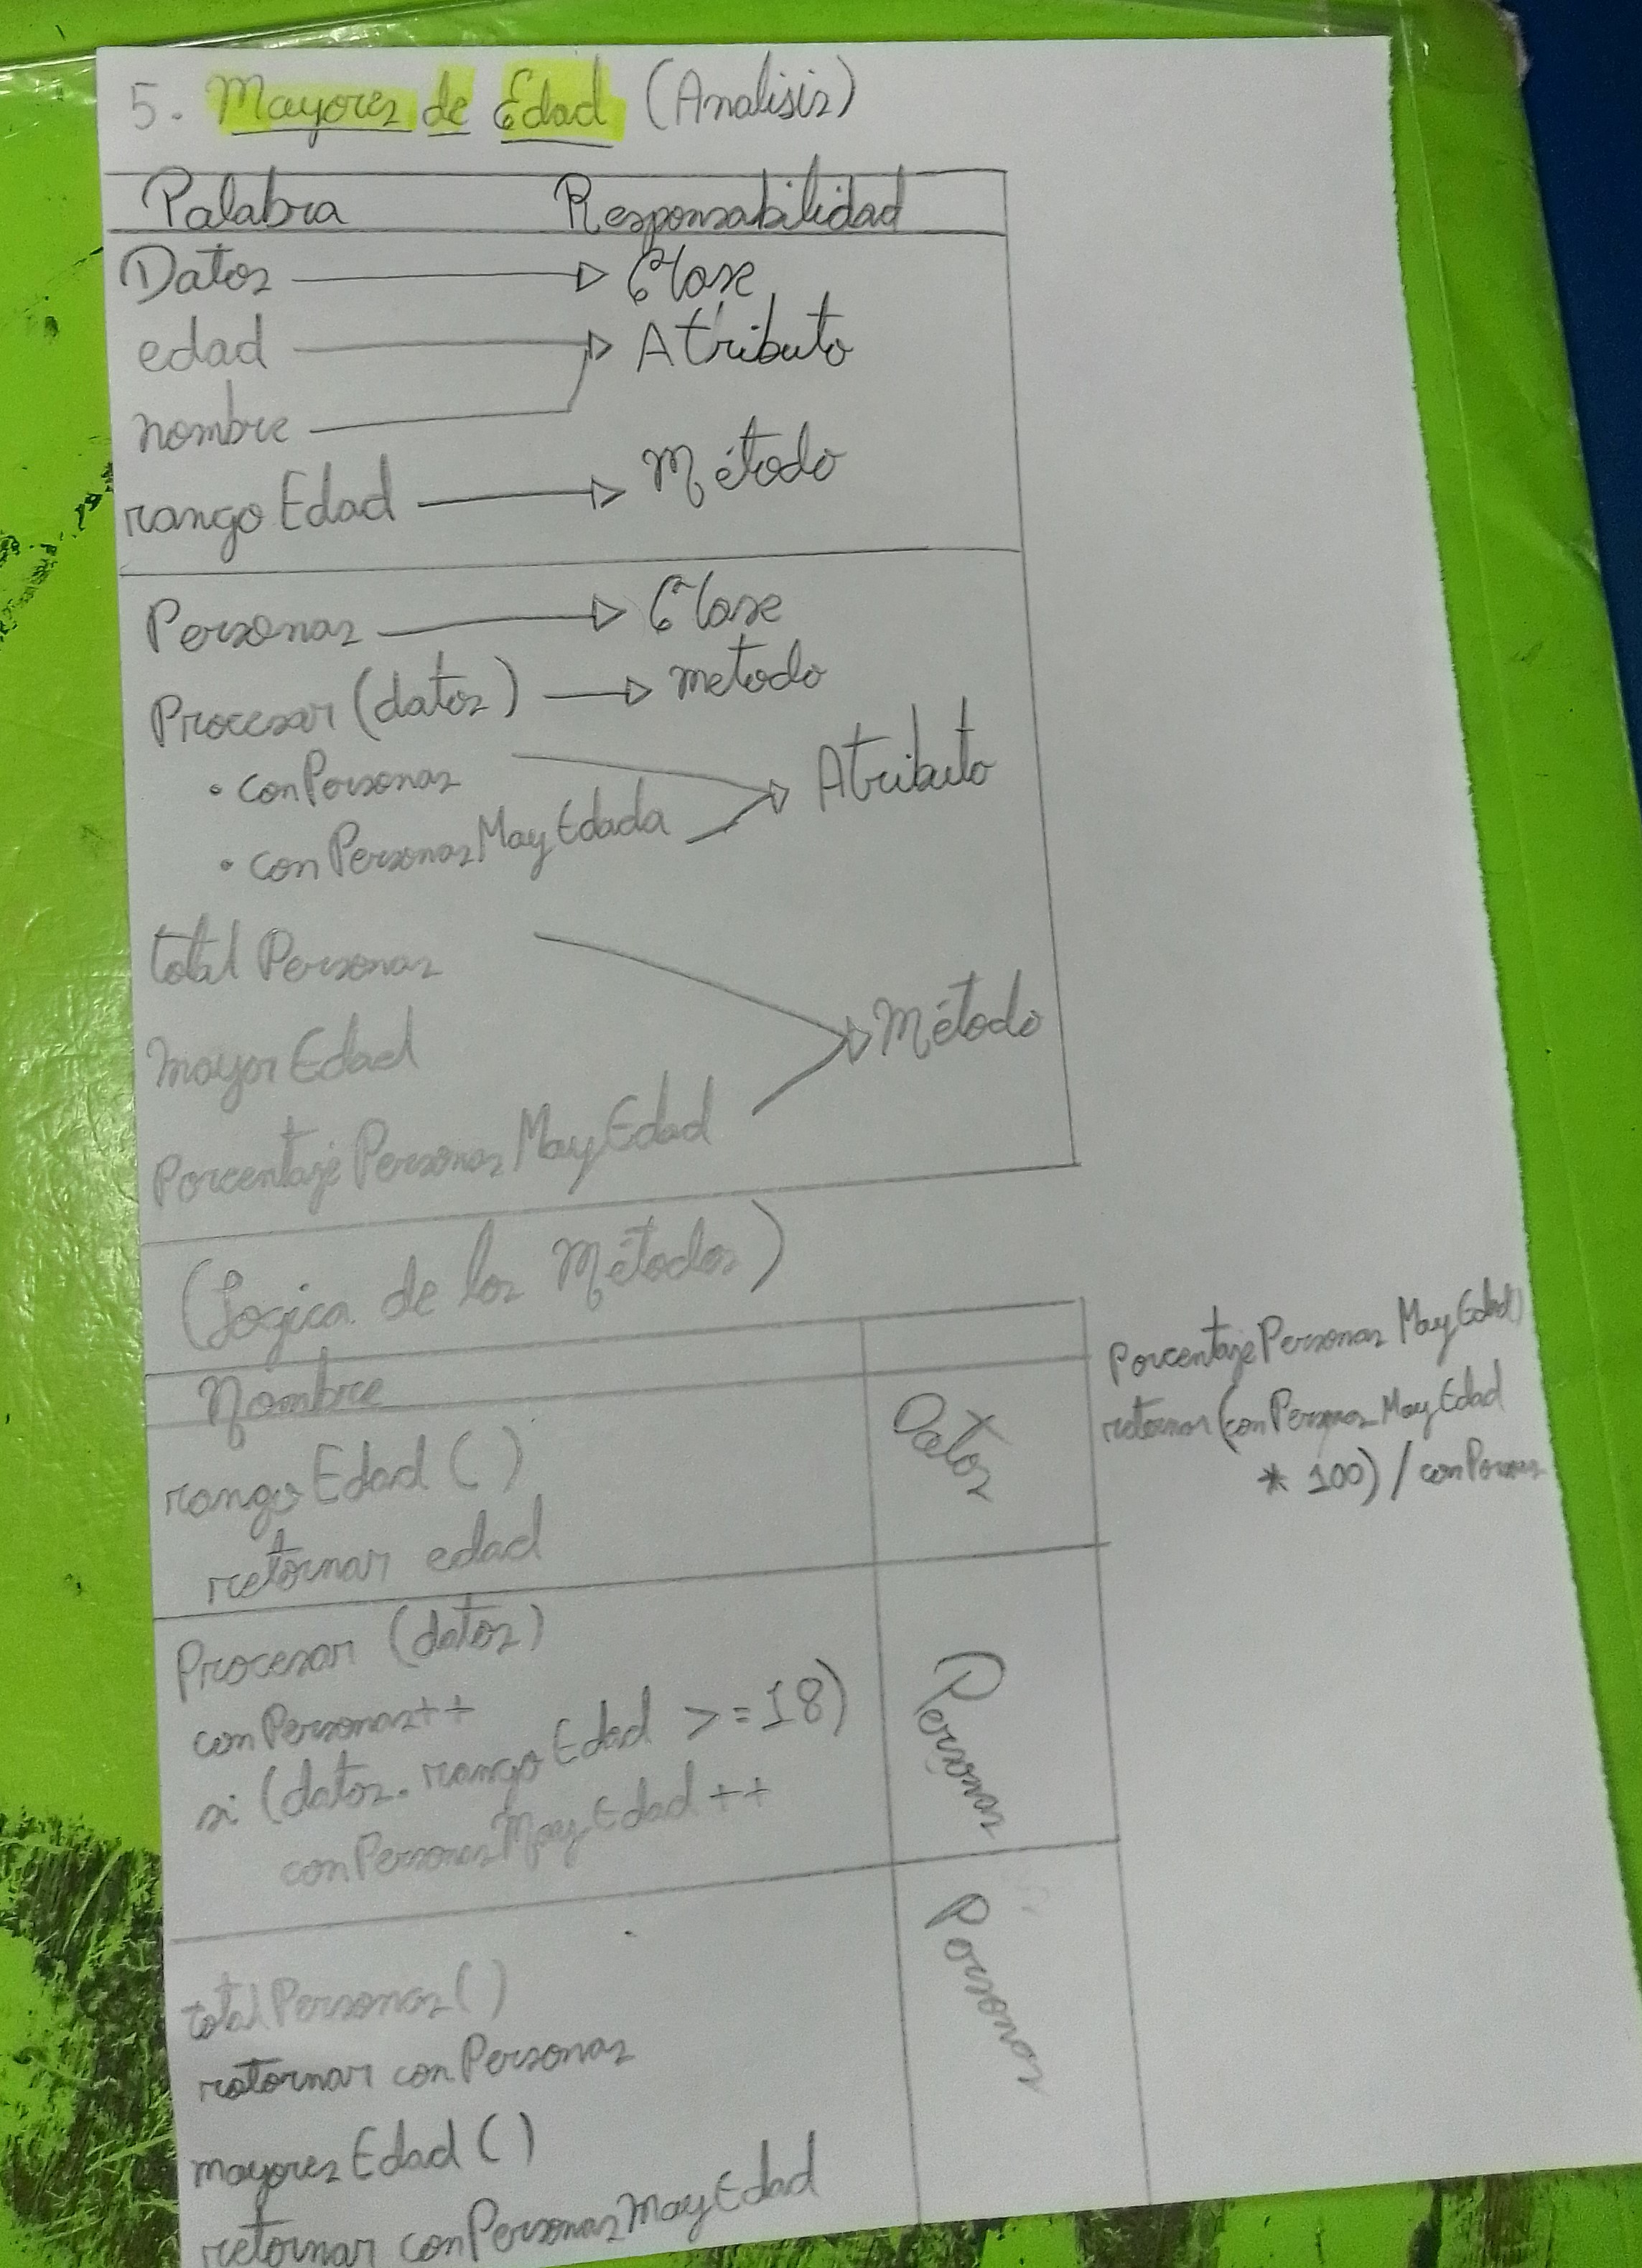 5. Mayores de Edad (Analisis)
Palabra Responsabilidad
Datos Clase
edad Atributo
nombre
rangoEdad Método
Personas Clase
Procesar (datos) metodo
• conPersonas Atributo
• conPersonasMayEdada
total Personas
mayorEdad Método
PorcentajePersonasMayEdad
(Logica de los Métodos)
Nombre
rangoEdad ()
retornar edad
Datos
Procesar (datos)
conPersonas++
si (datos.rangoEdad >= 18)
conPersonasMayEdad ++
Personas
totalPersonas ()
retornar conPersonas
mayoresEdad ()
retornar conPersonasMayEdad
Personas
PorcentajePersonasMayEdad)
retornar (conPersonasMayEdad
* 100) / conPersonas